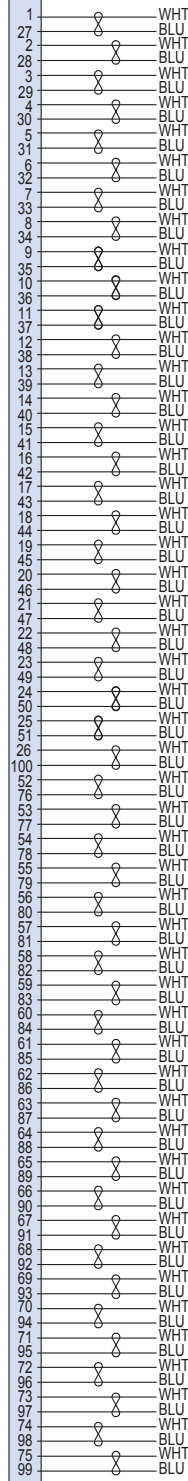 1 WHT
27 BLU
2 WHT
28 BLU
3 WHT
29 BLU
4 WHT
30 BLU
5 WHT
31 BLU
6 WHT
32 BLU
7 WHT
33 BLU
8 WHT
34 BLU
9 WHT
35 BLU
10 WHT
36 BLU
11 WHT
37 BLU
12 WHT
38 BLU
13 WHT
39 BLU
14 WHT
40 BLU
15 WHT
41 BLU
16 WHT
42 BLU
17 WHT
43 BLU
18 WHT
44 BLU
19 WHT
45 BLU
20 WHT
46 BLU
21 WHT
47 BLU
22 WHT
48 BLU
23 WHT
49 BLU
24 WHT
50 BLU
25 WHT
51 BLU
26 WHT
100 BLU
52 WHT
76 BLU
53 WHT
77 BLU
54 WHT
78 BLU
55 WHT
79 BLU
56 WHT
80 BLU
57 WHT
81 BLU
58 WHT
82 BLU
59 WHT
83 BLU
60 WHT
84 BLU
61 WHT
85 BLU
62 WHT
86 BLU
63 WHT
87 BLU
64 WHT
88 BLU
65 WHT
89 BLU
66 WHT
90 BLU
67 WHT
91 BLU
68 WHT
92 BLU
69 WHT
93 BLU
70 WHT
94 BLU
71 WHT
95 BLU
72 WHT
96 BLU
73 WHT
97 BLU
74 WHT
98 BLU
75 WHT
99 BLU